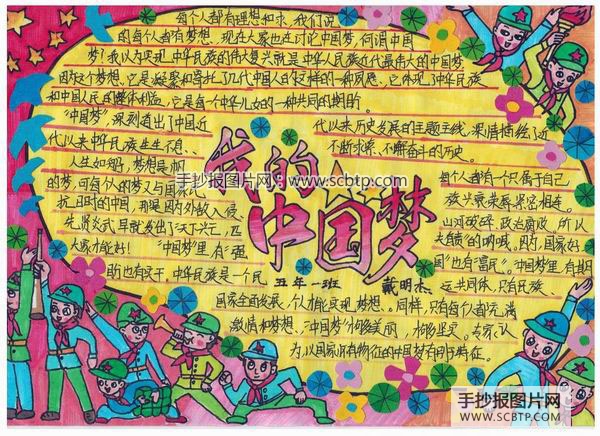 每个人都有理想和追求,我们说
的每个人都有梦想。现在大家也在讨论中国梦,何谓中国
梦?我以为实现中华民族的伟大复兴就是中华人民族近代最伟大的中国梦
因为这个梦想,它是凝聚和寄托了几代中国人的这样的一种夙愿,它体现了中华民族
和中国人民的整体利益,它是每个中华儿女的一种共同的期盼
"中国梦",深刻道出了中国近
代以来历史发展的主题主线,深情描绘了近
代以来中华民族生生不息、
不断求索、不懈奋斗的历史。
人生如船,梦想是帆
每个人都有一个只属于自己
的梦,可每个人的梦又与国家
族兴衰荣辱紧密相连。
抗日时的中国,那是因为外敌入侵、
山河破碎、政治腐败,所以
先贤炎武早就发出了天下兴亡,匹
夫有责的呐喊。因为,国家好
大家才能好!"中国梦里,有强
国"也有"富民"。"中国梦里,有期
盼也有实干,中华民族是一个
运共同体,只有民族
国家全面发展,个人才能实现梦想、同样,只有每个人都充满
激情和梦想,"中国梦"才能够美丽,才能够坚实。专家认
为,以国家
我的
中国梦
五年一班 戴明杰
手抄报图片网:www.scbtp.com
手抄报图片网
WWW.SCBTP.COM